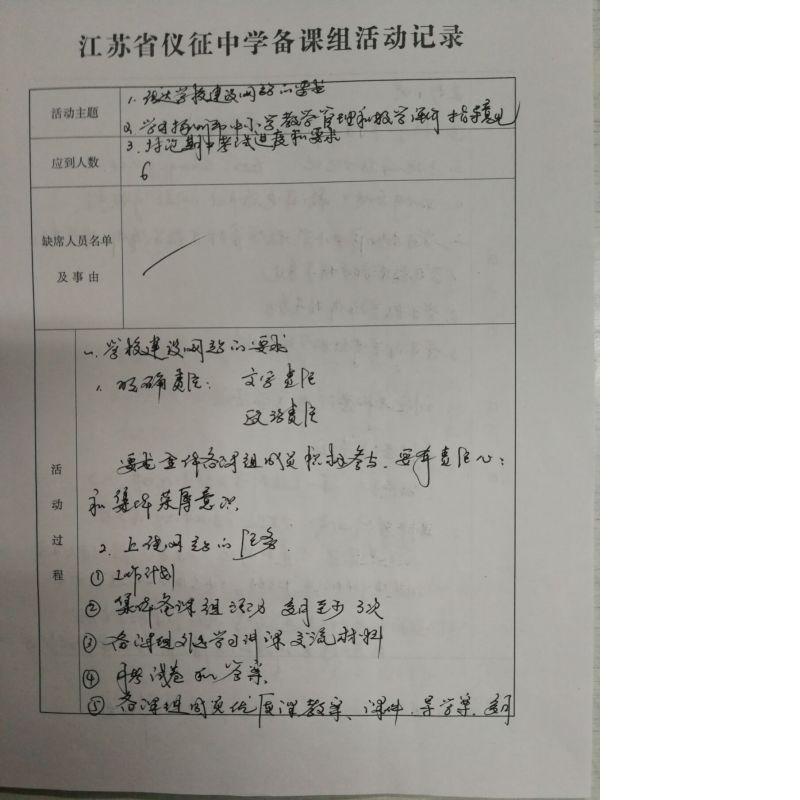 江苏省仪征中学备课组活动记录
活动主题
1. 组达学校建设网站的要求
2. 学习扬州市中小学教学管理和教学评价指导意见
3. 讨论期中考试进度和要求
应到人数
6
缺席人员名单
及事由
活动过程
一. 学校建设网站的要求
1. 明确责任: 文字责任
政治责任
要求全体备课组成员积极参与. 要有责任心;
和集体荣辱意识.
2. 上传网站的任务.
① 工作计划
② 集体备课组活动 每月至少3次
③ 备课组外出学习讲课交流材料
④ 月考试卷和答案.
⑤ 备课组成员优质课教案、课件、导学案. 每月